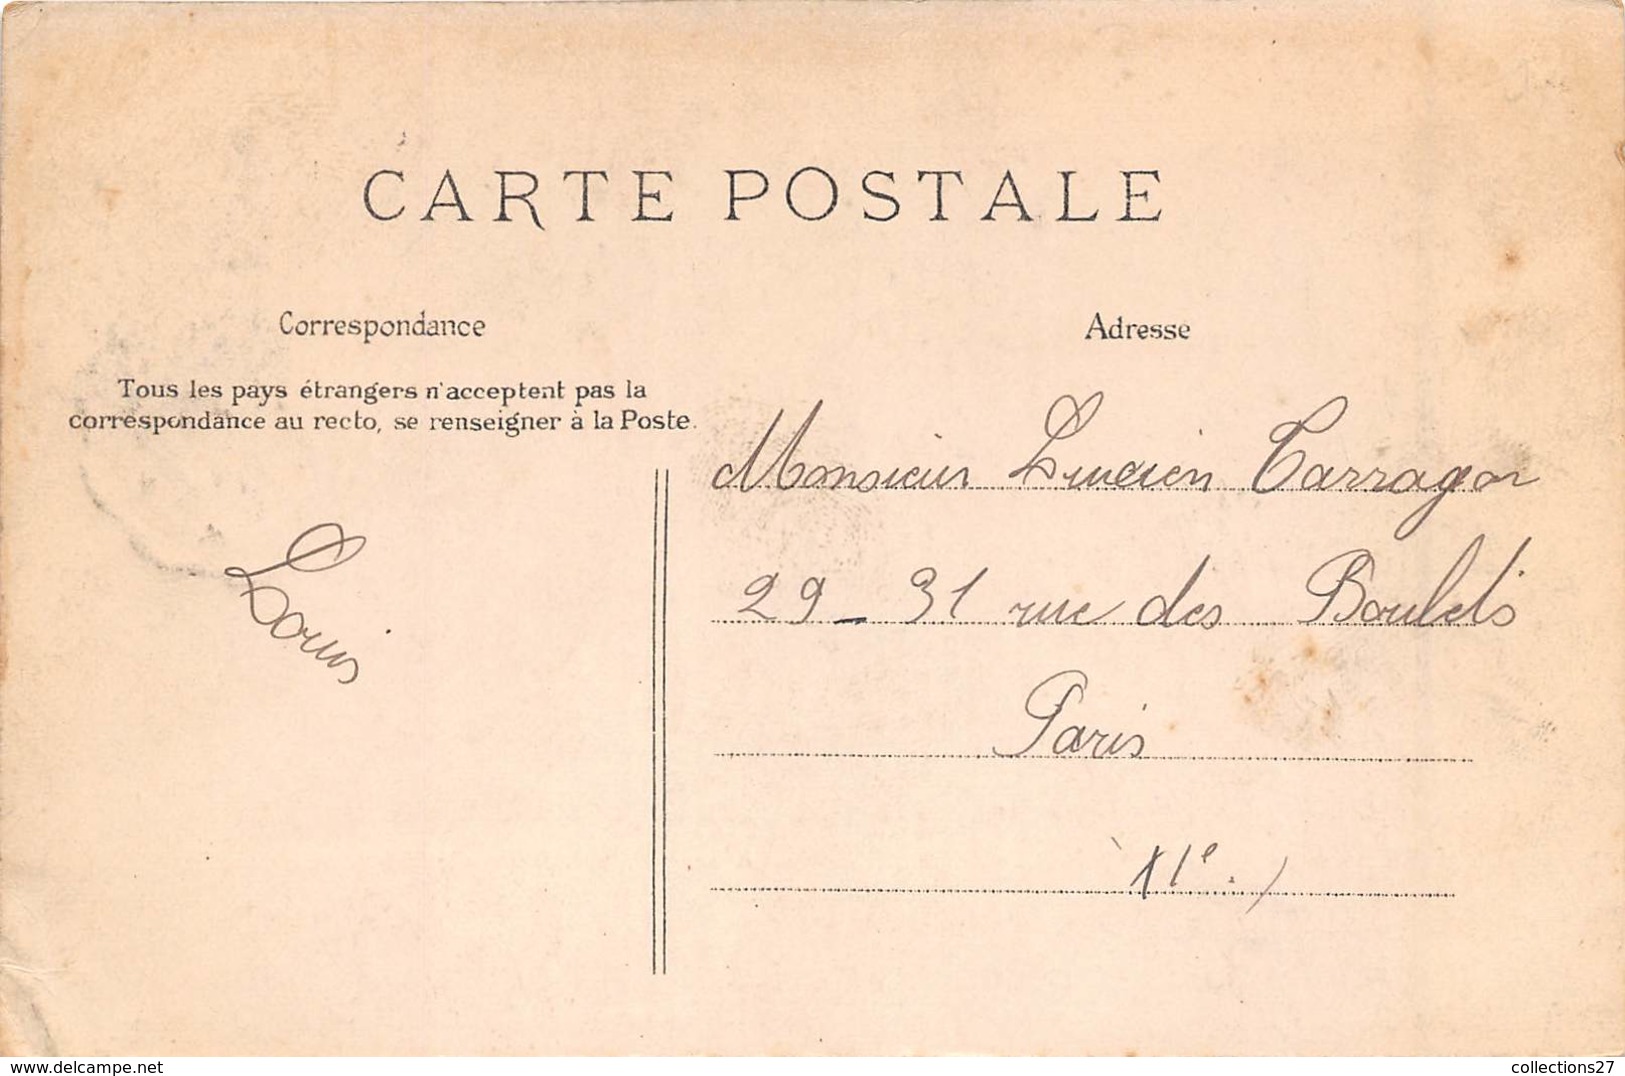 CARTE POSTALE
Correspondance
Tous les pays étrangers n'acceptent pas la
correspondance au recto, se renseigner à la Poste.
Louis
Adresse
Monsieur Lucien Tarragon
29 - 31 rue des Boulets
Paris
XIe.
delcampe.net
collections27